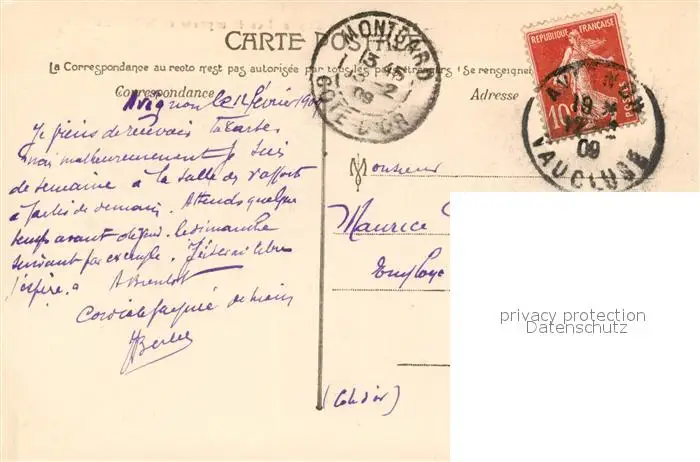 CARTE POSTALE
La Correspondance au recto n'est pas autorisée par tous les pays étrangers (Se renseigner
Correspondance
Adresse
MONTBARD
13 45
13 - 2
09
COTE D'OR
REPUBLIQUE FRANÇAISE
10
POSTES
AVIGNON
19
12
09
VAUCLUSE
Avignon le 12 février 19
Je viens de recevoir ta carte
mais malheureusement je suis
de semaine à la salle de rapport
à partir de demain. Attends quelque
temps avant le dimanche
suivant par exemple. J'serai libre
j'espère. A Bientôt
Cordiale poignée de main
Monsieur
Maurice
Employé
(Côte d'or)
privacy protection
Datenschutz